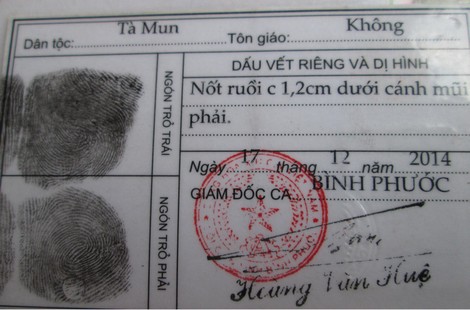 Dân tộc: Tà Mun Tôn giáo: Không
NGÓN TRỎ TRÁI
NGÓN TRỎ PHẢI
DẤU VẾT RIÊNG VÀ DỊ HÌNH
Nốt ruồi c 1,2cm dưới cánh mũi
phải.
Ngày 17 tháng 12 năm 2014
GIÁM ĐỐC CA BÌNH PHƯỚC
Hoàng Văn Huệ